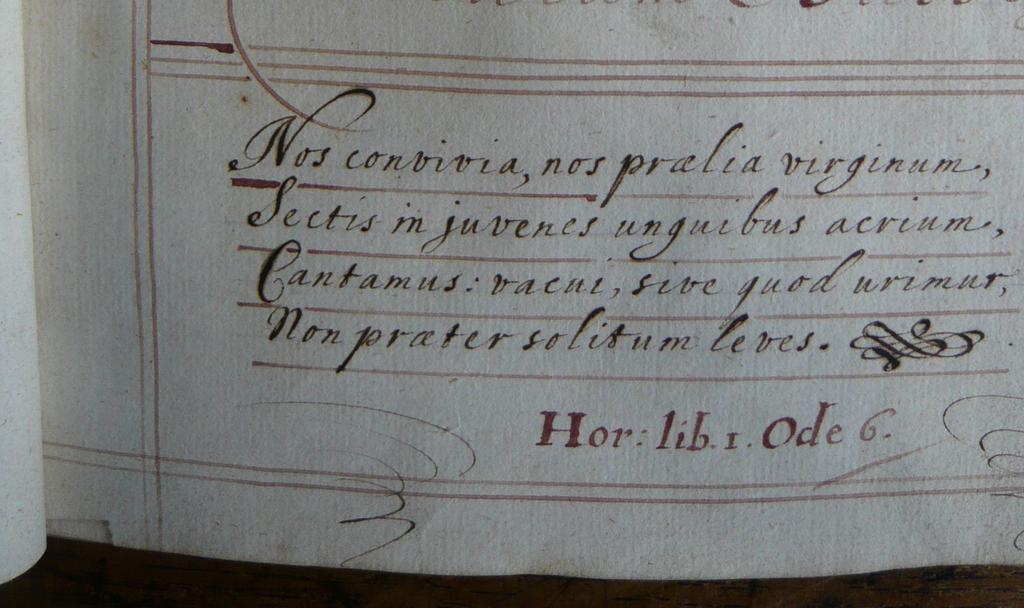 Nos convivia, nos prælia virginum,
Sectis in juvenes unguibus acrium,
Cantamus: vacui, sive quod urimur,
Non præter solitum leves.
Hor: lib. 1. Ode 6.